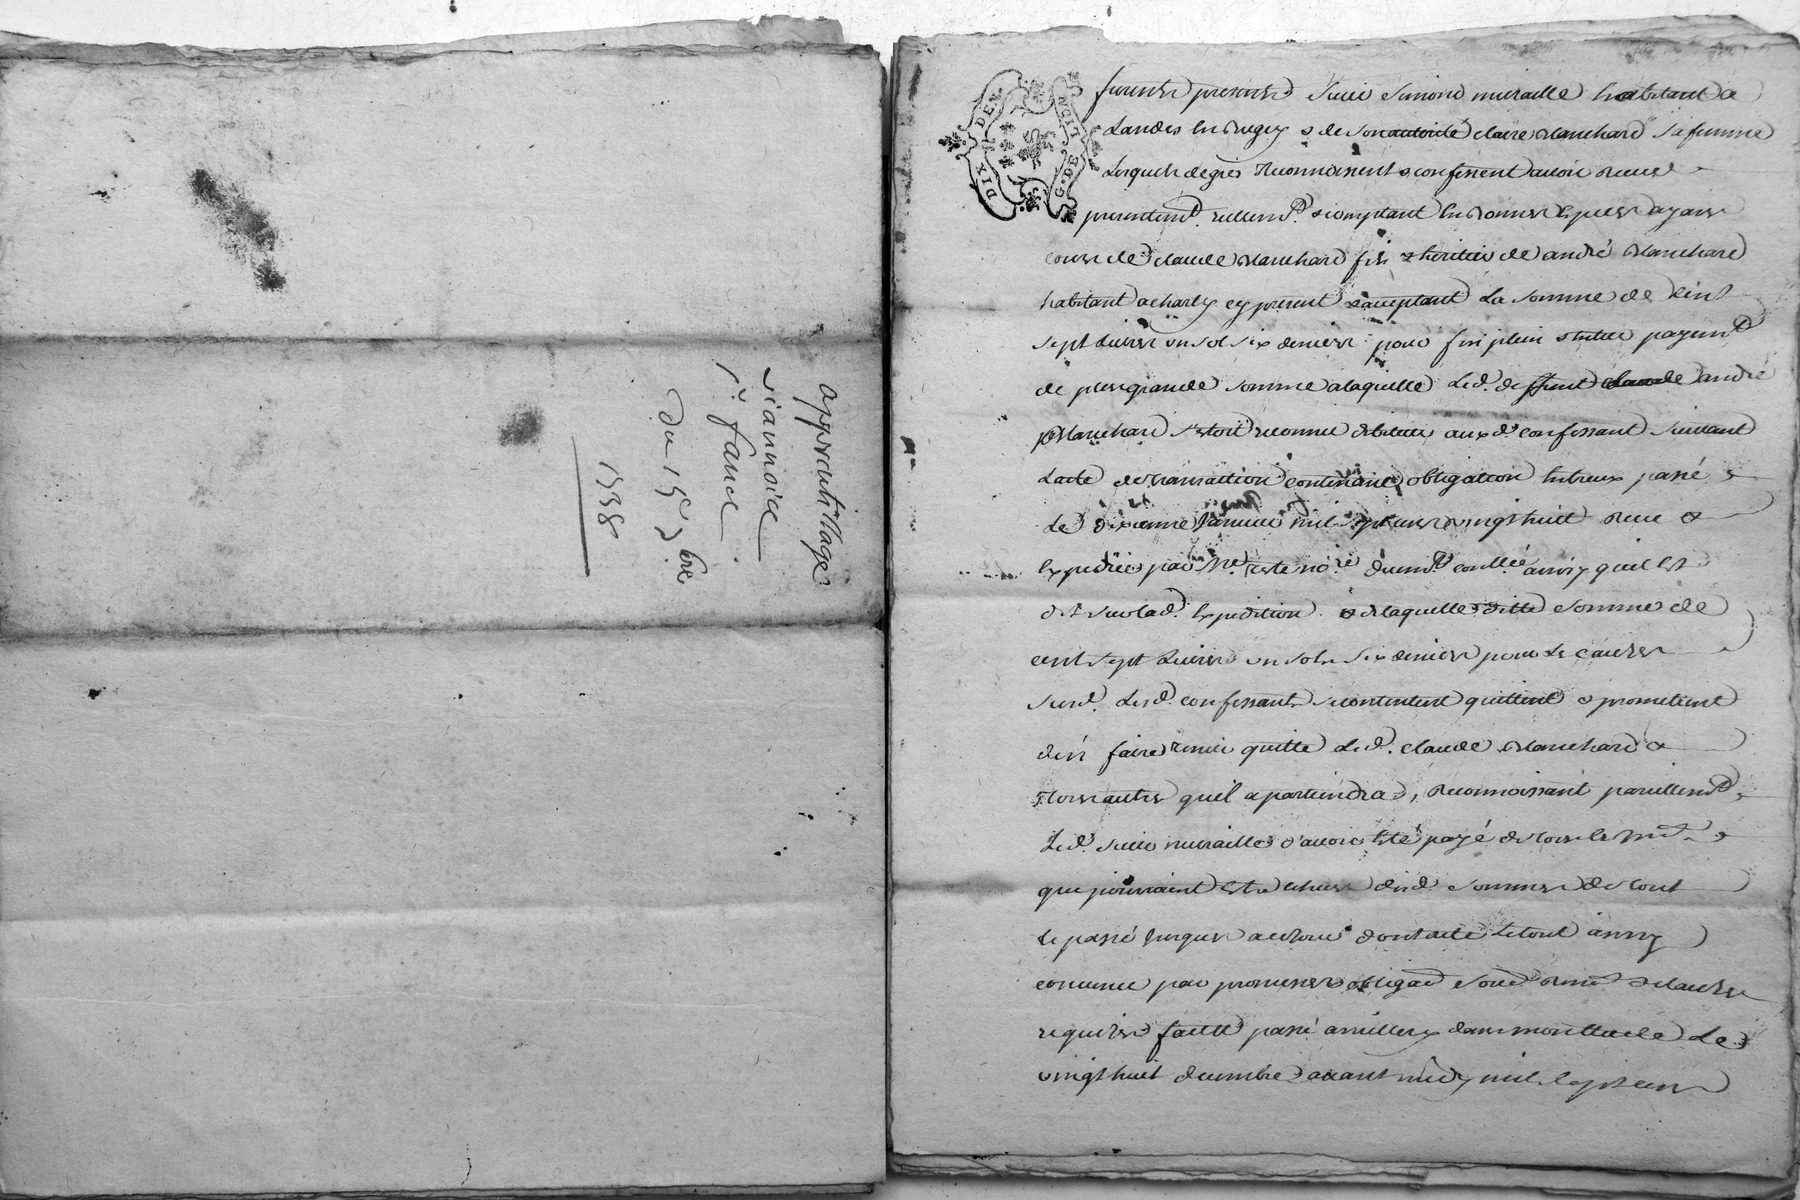 apprentissage
Jeannoice
Sr. fanel
Du 15e 9bre
1738
DIX DEN.
G. DE LION
furent presents Sieur Simond muraille habitant a
Landes en Bugey & de son autorité claire Blanchard sa femme
Lesquels de gres Reconnoissent & confessent avoir receu
presentemt. reellemt. & comptant en bonnes especes ayans
cours de claude Blanchard fils & heritier de andré Blanchard
habitant a charly cy present & acceptant La somme de Cent
sept Livres un sol six deniers pour fin plein & entier payemt
de plus grande somme a laquelle Led. deffunt claude andré
Blanchard s'etoit reconnu debiteur auxd. confessant suivant
Lacte de transaction contenant obligation entr'eux passé
Le dixieme Janvier mil sept cens vingt huit Receu &
Expediée par Me. notre ainsy quil Est
dit sur lad. Expedition & de laquelle ditte somme de
cent sept Livres un sol six deniers pour Les causes
susd. Lesd. confessants se contentent quittent & promettent
d'en faire tenir quitte Led. claude Blanchard &
tous autres quil apartiendra, Reconnoissant pareillemt.
Led. sieur muraille d'avoir Eté payé de tous les
que pourroient Estre echeus desd. sommes de tout
Le passé Jusques a ce Jour dont acte Le tout ainsy
convenu par promesses obligaon & clauses
requises fait & passé a millery dans mon Etude Le
vingt huit decembre avant midy mil sept cens